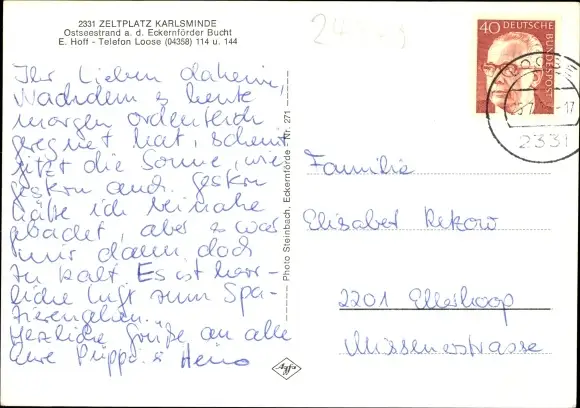 2331 ZELTPLATZ KARLSMINDE
Ostseestrand a. d. Eckernförder Bucht
E. Hoff - Telefon Loose (04358) 114 u. 144
Ihr Lieben daheim,
Nachdem es heute
morgen ordentlich
geregnet hat, scheint
jetzt die Sonne, wie
gestern auch. Gestern
hätte ich beinahe
gebadet, aber es war
mir dann doch
zu kalt. Es ist herr-
liche Luft zum Spa-
zierengehen.
Herzliche Grüße an alle
Eure Puppa & Heino
Photo Steinbach, Eckernförde - Nr. 271
Agfa
40 DEUTSCHE
BUNDESPOST
-17
2331
Familie
Elisabet Rekow
2201 Ellerhoop
Missenerstrasse